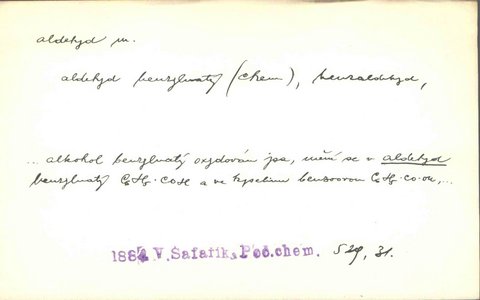 aldehyd m.
aldehyd benzylnatý (chem), benzaldehyd,
... alkohol benzylnatý oxydován jsa, mění se v aldehyd
benzylnatý C6H5·COH a ve kyselinu benzoovou C6H5·CO·OH,...
188 V. Šafařík, Poč.chem. 529, 31.